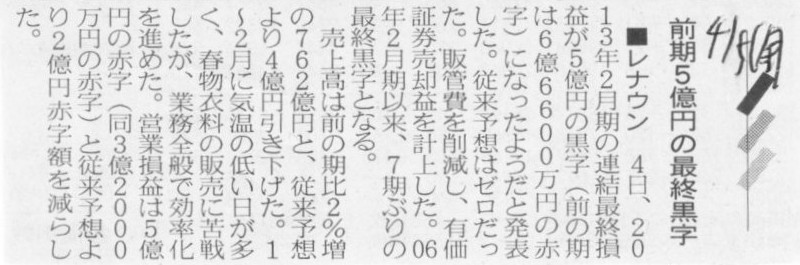 4/5(金)
前期5億円の最終黒字
■レナウン 4日、20
13年2月期の連結最終損
益が5億円の黒字(前の期
は6億6600万円の赤
字)になったようだと発表
した。従来予想はゼロだっ
た。販管費を削減し、有価
証券売却益を計上した。06
年2月期以来、7期ぶりの
最終黒字となる。
売上高は前の期比2%増
の762億円と、従来予想
より4億円引き下げた。1
~2月に気温の低い日が多
く、春物衣料の販売に苦戦
したが、業務全般で効率化
を進めた。営業損益は5億
円の赤字(同3億2000
万円の赤字)と従来予想よ
り2億円赤字額を減らし
た。